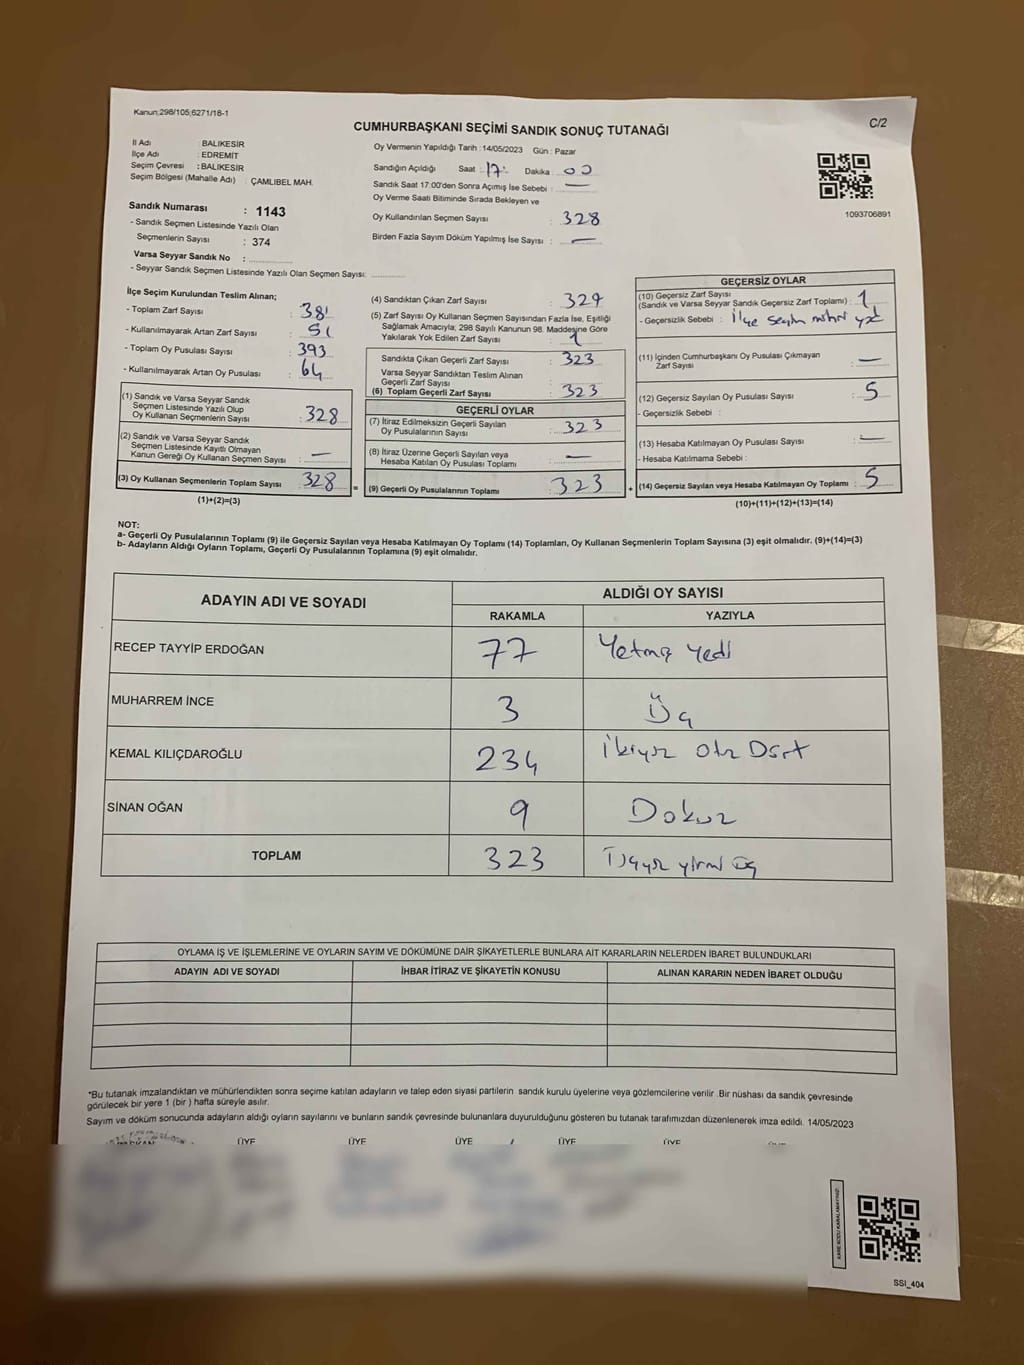 Kanun;298/105;6271/18-1
CUMHURBAŞKANI SEÇİMİ SANDIK SONUÇ TUTANAĞI
C/2
İl Adı : BALIKESİR
İlçe Adı : EDREMİT
Seçim Çevresi : BALIKESİR
Seçim Bölgesi (Mahalle Adı) : ÇAMLIBEL MAH.
Sandık Numarası : 1143
- Sandık Seçmen Listesinde Yazılı Olan
Seçmenlerin Sayısı : 374
Varsa Seyyar Sandık No :
- Seyyar Sandık Seçmen Listesinde Yazılı Olan Seçmen Sayısı:
Oy Vermenin Yapıldığı Tarih : 14/05/2023 Gün : Pazar
Sandığın Açıldığı Saat : 17 Dakika : 00
Sandık Saat 17:00'den Sonra Açımış İse Sebebi : —
Oy Verme Saati Bitiminde Sırada Bekleyen ve
Oy Kullandırılan Seçmen Sayısı : 328
Birden Fazla Sayım Döküm Yapılmış İse Sayısı : —
1093706891
İlçe Seçim Kurulundan Teslim Alınan;
- Toplam Zarf Sayısı : 381
- Kullanılmayarak Artan Zarf Sayısı : 51
- Toplam Oy Pusulası Sayısı : 393
- Kullanılmayarak Artan Oy Pusulası : 64
(1) Sandık ve Varsa Seyyar Sandık
Seçmen Listesinde Yazılı Olup
Oy Kullanan Seçmenlerin Sayısı : 328
(2) Sandık ve Varsa Seyyar Sandık
Seçmen Listesinde Kayıtlı Olmayan
Kanun Gereği Oy Kullanan Seçmen Sayısı : —
(3) Oy Kullanan Seçmenlerin Toplam Sayısı : 328
(1)+(2)=(3)
=
(4) Sandıktan Çıkan Zarf Sayısı : 329
(5) Zarf Sayısı Oy Kullanan Seçmen Sayısından Fazla İse, Eşitliği
Sağlamak Amacıyla; 298 Sayılı Kanunun 98. Maddesine Göre
Yakılarak Yok Edilen Zarf Sayısı : 1
Sandıkta Çıkan Geçerli Zarf Sayısı : 323
Varsa Seyyar Sandıktan Teslim Alınan
Geçerli Zarf Sayısı
(6) Toplam Geçerli Zarf Sayısı : 323
GEÇERLİ OYLAR
(7) İtiraz Edilmeksizin Geçerli Sayılan
Oy Pusulalarının Sayısı : 323
(8) İtiraz Üzerine Geçerli Sayılan veya
Hesaba Katılan Oy Pusulası Toplamı : —
(9) Geçerli Oy Pusulalarının Toplamı : 323
+
GEÇERSİZ OYLAR
(10) Geçersiz Zarf Sayısı
(Sandık ve Varsa Seyyar Sandık Geçersiz Zarf Toplamı) : 1
- Geçersizlik Sebebi : İlçe seçim
(11) İçinden Cumhurbaşkanı Oy Pusulası Çıkmayan
Zarf Sayısı : —
(12) Geçersiz Sayılan Oy Pusulası Sayısı : 5
- Geçersizlik Sebebi :
(13) Hesaba Katılmayan Oy Pusulası Sayısı : —
- Hesaba Katılmama Sebebi :
(14) Geçersiz Sayılan veya Hesaba Katılmayan Oy Toplamı : 5
(10)+(11)+(12)+(13)=(14)
NOT:
a- Geçerli Oy Pusulalarının Toplamı (9) ile Geçersiz Sayılan veya Hesaba Katılmayan Oy Toplamı (14) Toplamları, Oy Kullanan Seçmenlerin Toplam Sayısına (3) eşit olmalıdır. (9)+(14)=(3)
b- Adayların Aldığı Oyların Toplamı, Geçerli Oy Pusulalarının Toplamına (9) eşit olmalıdır.
ADAYIN ADI VE SOYADI
ALDIĞI OY SAYISI
RAKAMLA YAZIYLA
RECEP TAYYİP ERDOĞAN 77 Yetmiş Yedi
MUHARREM İNCE 3 Üç
KEMAL KILIÇDAROĞLU 234 İkiyüz Otuz Dört
SİNAN OĞAN 9 Dokuz
TOPLAM 323 Üçyüz yirmi üç
OYLAMA İŞ VE İŞLEMLERİNE VE OYLARIN SAYIM VE DÖKÜMÜNE DAİR ŞİKAYETLERLE BUNLARA AİT KARARLARIN NELERDEN İBARET BULUNDUKLARI
ADAYIN ADI VE SOYADI İHBAR İTİRAZ VE ŞİKAYETİN KONUSU ALINAN KARARIN NEDEN İBARET OLDUĞU
*Bu tutanak imzalandıktan ve mühürlendikten sonra seçime katılan adayların ve talep eden siyasi partilerin sandık kurulu üyelerine veya gözlemcilerine verilir .Bir nüshası da sandık çevresinde
görülecek bir yere 1 (bir ) hafta süreyle asılır.
Sayım ve döküm sonucunda adayların aldığı oyların sayılarını ve bunların sandık çevresinde bulunanlara duyurulduğunu gösteren bu tutanak tarafımızdan düzenlenerek imza edildi. 14/05/2023
ÜYE ÜYE ÜYE ÜYE ÜYE
KARE KODU KARALAMAYINIZ!
SSI_404